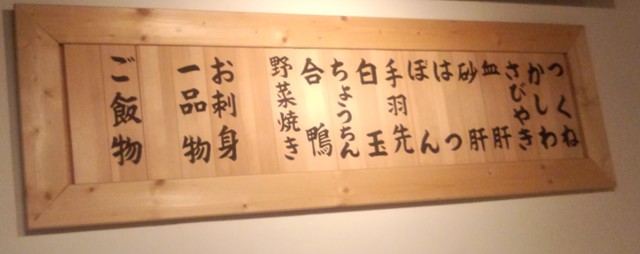 つくね
かしわ
さびやき
血肝
砂肝
はつ
ぼん
手羽先
白玉
ちょうちん
合鴨
野菜焼き
お刺身
一品物
ご飯物